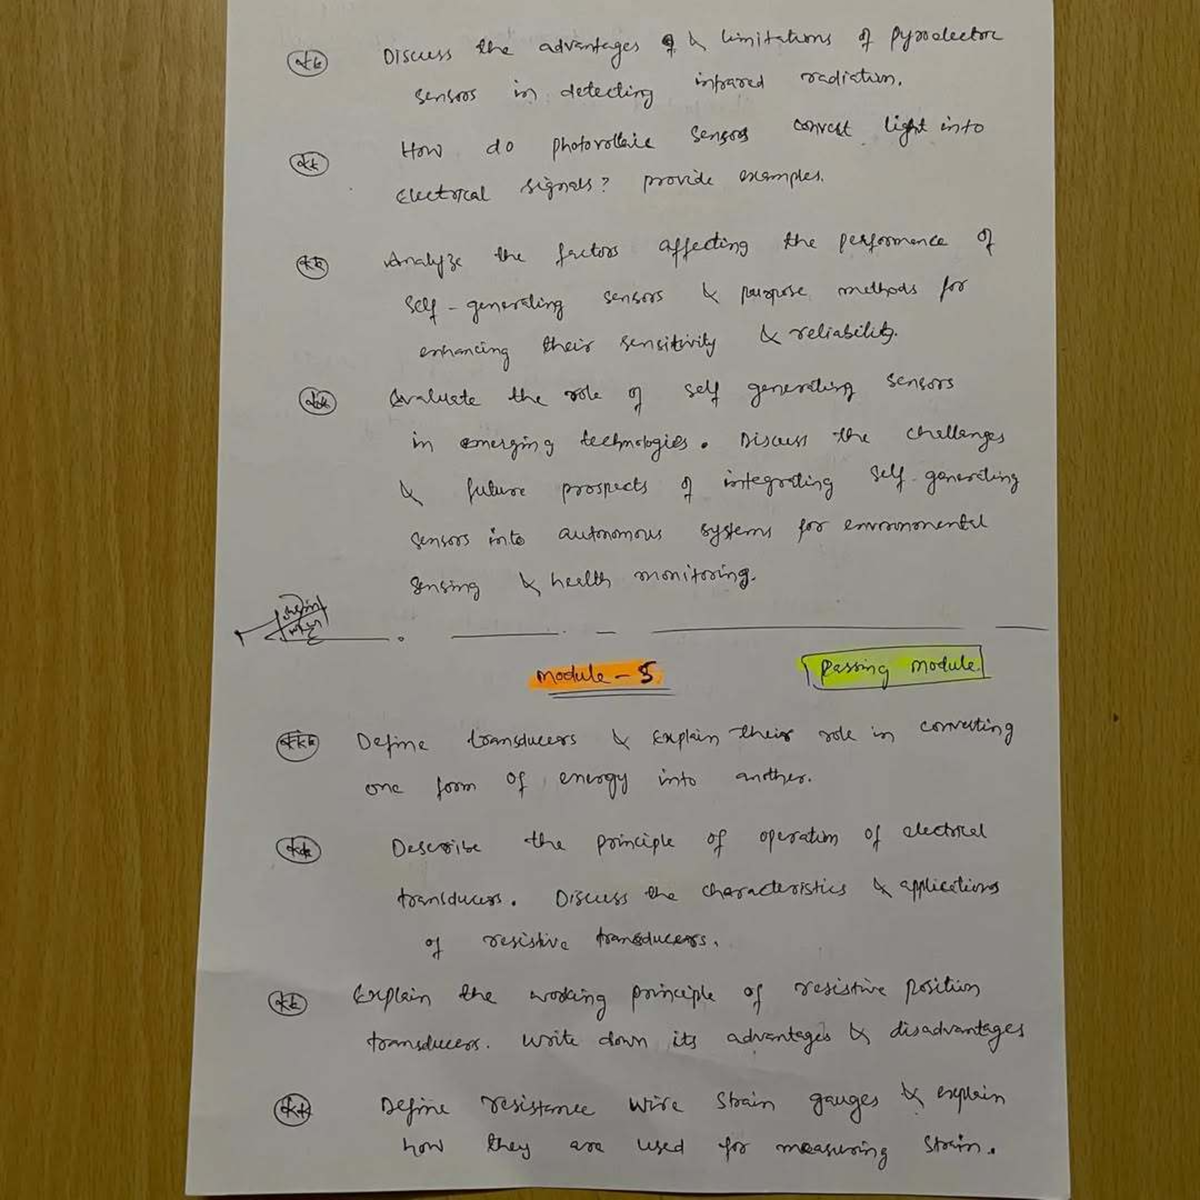 Discuss the advantages & limitations of pyroelectric
sensors in detecting infrared radiation.
How do photovoltaic sensors convert light into
Electrical signals? provide examples.
Analyze the factors affecting the performance of
self-generating sensors & purpose methods for
enhancing their sensitivity & reliability.
Evaluate the role of self generating sensors
in emerging technologies. Discuss the challenges
& future prospects of integrating self-generating
sensors into autonomous systems for environmental
sensing & health monitoring.
Module-5
Passing module.
Define transducers & explain their role in converting
one form of energy into another.
Describe the principle of operation of electrical
transducers. Discuss the characteristics & applications
of resistive transducers.
Explain the working principle of resistive position
transducers. Write down its advantages & disadvantages
Define resistance wire strain gauges & explain
how they are used for measuring strain.